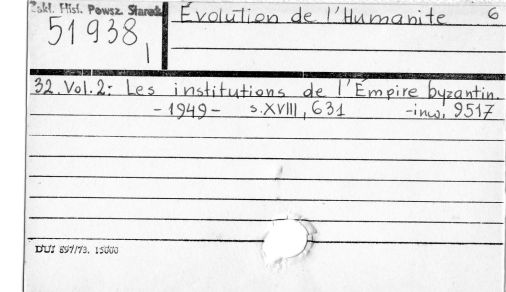 Zakł. Hist. Powsz. Staroż.
51938
1
Evolution de l'Humanite 6
32. Vol. 2: Les institutions de l'Empire byzantin.
-1949- s. XVIII, 631 -inw. 9517
DUJ 897/73. 15000